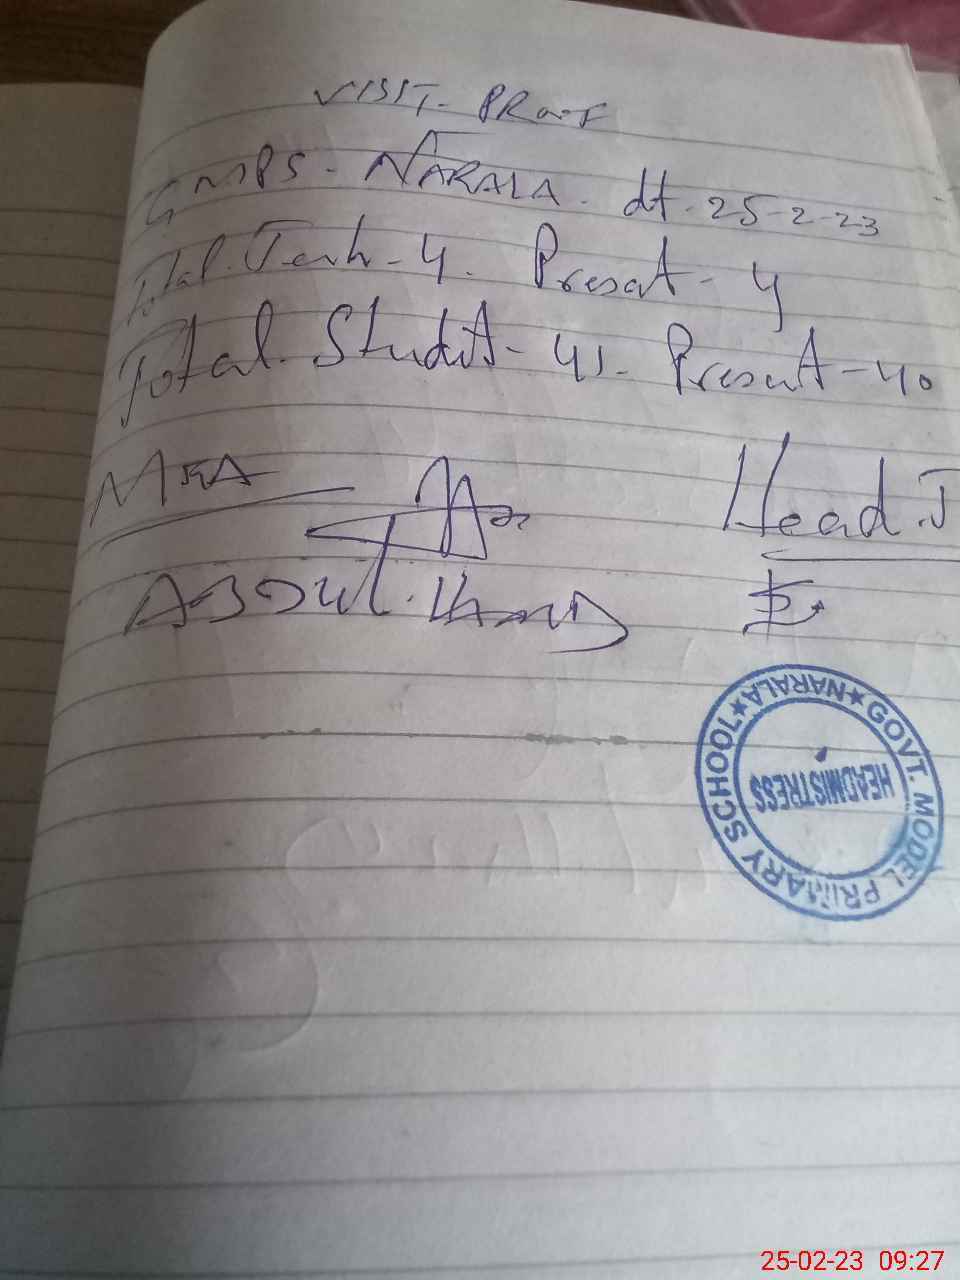 VISIT - PROOF
GMPS - NARALA - dt - 25-2-23
Total Teach - 4 . Present - 4
Total Studnt - 41 - Present - 40
MEA
Head.T
ABDUL
GOVT. MODEL PRIMARY SCHOOL★NARALA★
HEADMISTRESS
25-02-23 09:27